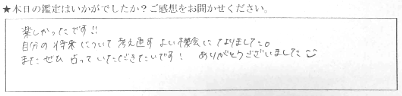 ★本日の鑑定はいかがでしたか？ご感想をお聞かせください。
楽しかったです!!
自分の将来について考え直すよい機会になりました。
またぜひ占っていただきたいです！ ありがとうございました